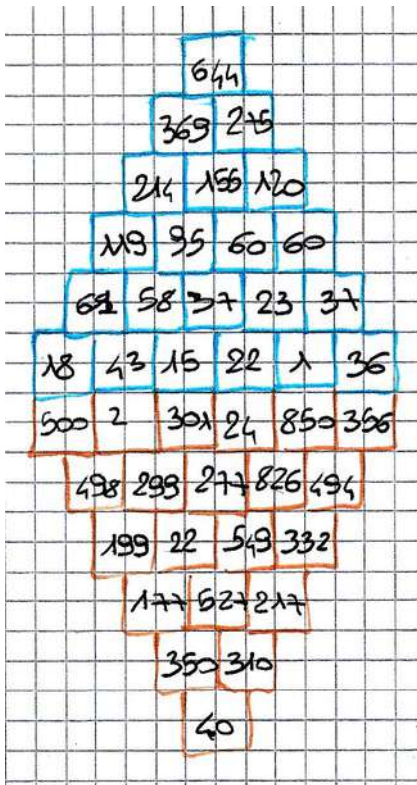 644
369 275
214 155 120
119 95 60 60
61 58 37 23 37
18 43 15 22 1 36
500 2 301 24 850 356
498 299 277 826 494
199 22 549 332
177 527 217
350 310
40